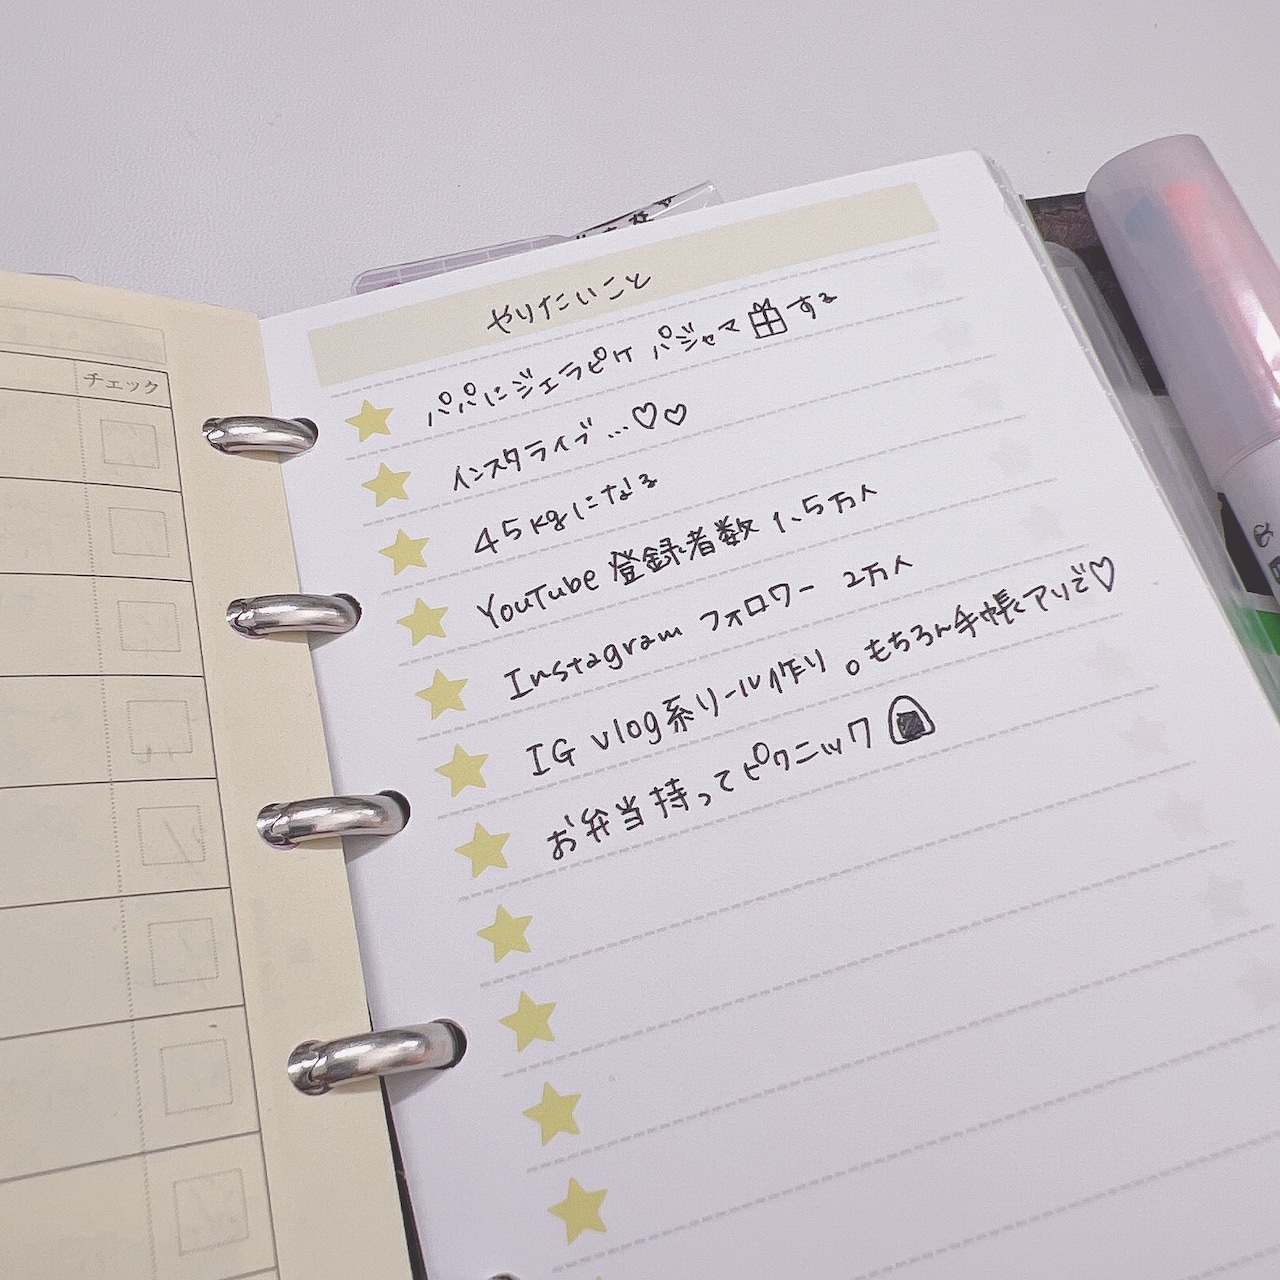 チェック
やりたいこと
パパにジェラピケ パジャマする
インスタライブ…♡♡
45kgになる
YouTube 登録者数 1.5万人
Instagram フォロワー 2万人
IG vlog系リール作り。もちろん手帳アリで♡
お弁当持ってピクニック